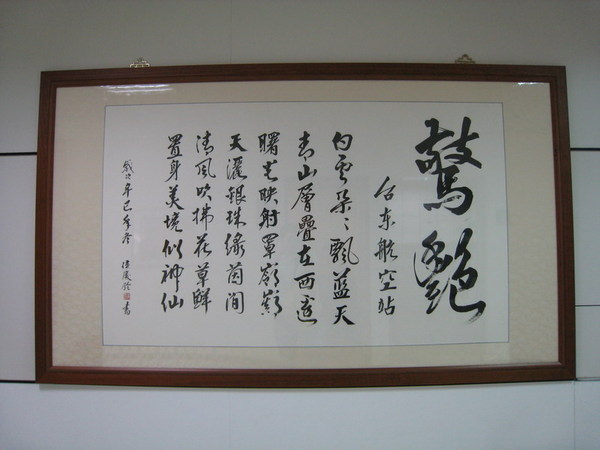 驚艷
台東航空站
白雲朵〻飄藍天
青山層疊在西邊
曙光映射罩嶺巔
天灑銀珠綠茵間
清風吹拂花草鮮
置身美境似神仙
歲次辛巳年冬 書